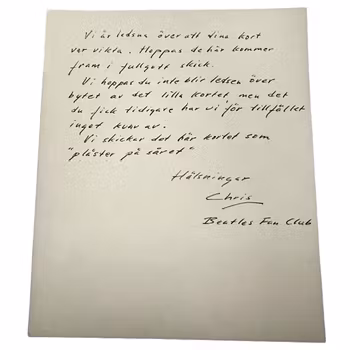 Vi är ledsna över att dina kort
var vikta. Hoppas de här kommer
fram i fullgott skick.
Vi hoppas du inte blir ledsen över
bytet av det lilla kortet, men det
du fick tidigare har vi för tillfället
inget kvar av.
Vi skickar det här kortet som
"plåster på såret"
Hälsningar
Chris
Beatles Fan Club